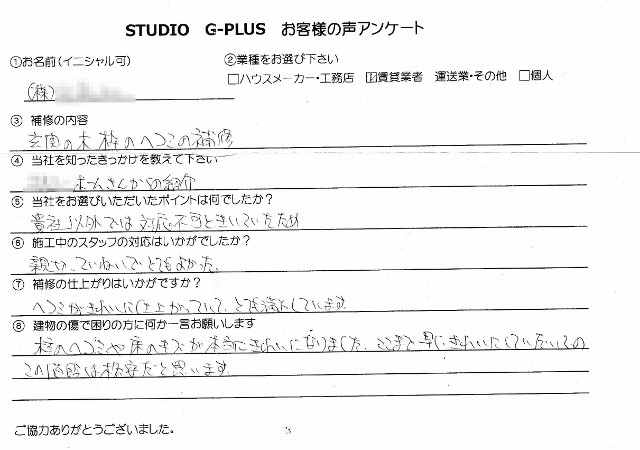 STUDIO G-PLUS お客様の声アンケート
①お名前(イニシャル可) ②業種をお選び下さい
□ハウスメーカー・工務店 ☑賃貸業者 運送業・その他 □個人
(株)
③ 補修の内容
玄関の木枠のヘコミの補修
④ 当社を知ったきっかけを教えて下さい
ホームさんからの紹介
⑤ 当社をお選びいただいたポイントは何でしたか?
貴社以外では対応不可ときいていたため
⑥ 施工中のスタッフの対応はいかがでしたか?
親切、ていねいでとてもよかった。
⑦ 補修の仕上がりはいかがですか?
ヘコミがきれいに仕上がっていて、とても満足しています。
⑧ 建物の傷で困りの方に何か一言お願いします
枠のヘコミや床のキズが本当にきれいになりました。ここまで早く、きれいにしていただいての
この価格は格安だと思います。
ご協力ありがとうございました。